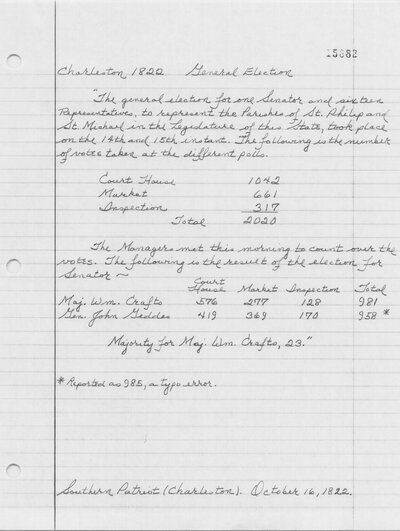 15882
Charleston 1822 General Election
"The general election for one Senator and sixteen
Representatives, to represent the Parishes of St. Philip and
St. Michael in the Legislature of this State, took place
on the 14th and 15th instant. The following is the number
of votes taken at the different polls.
Court House 1042
Market 661
Inspection 317
Total 2020
The Managers met this morning to count over the
votes. The following is the result of the election for
Senator ~
Court
House Market Inspection Total
Maj. Wm. Crafts 576 277 128 981
Gen. John Geddes 419 369 170 958 *
Majority for Maj. Wm. Crafts, 23."
* Reported as 985, a typo error.
Southern Patriot (Charleston). October 16, 1822.